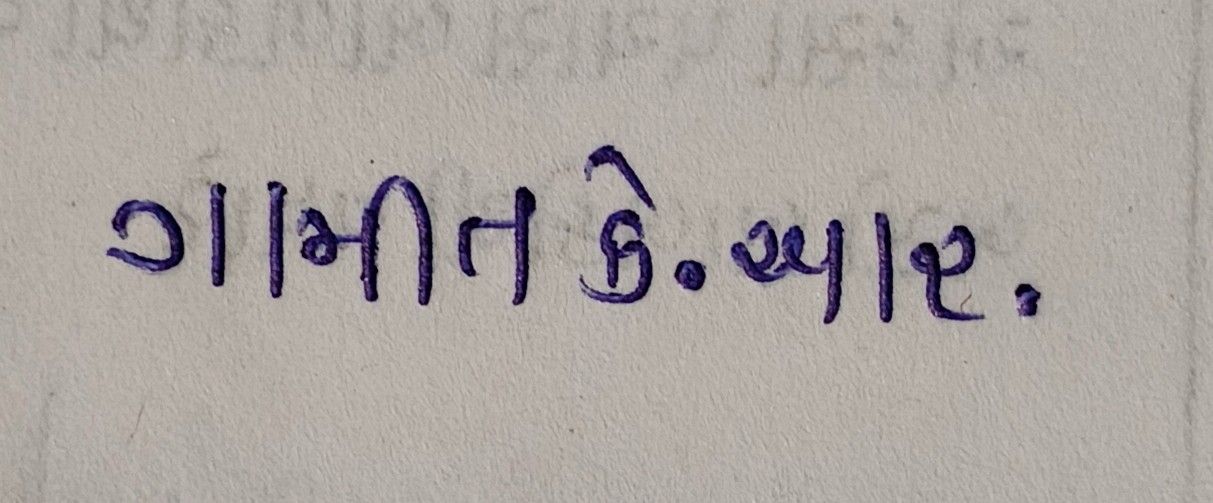 ગામીત કે.આર.